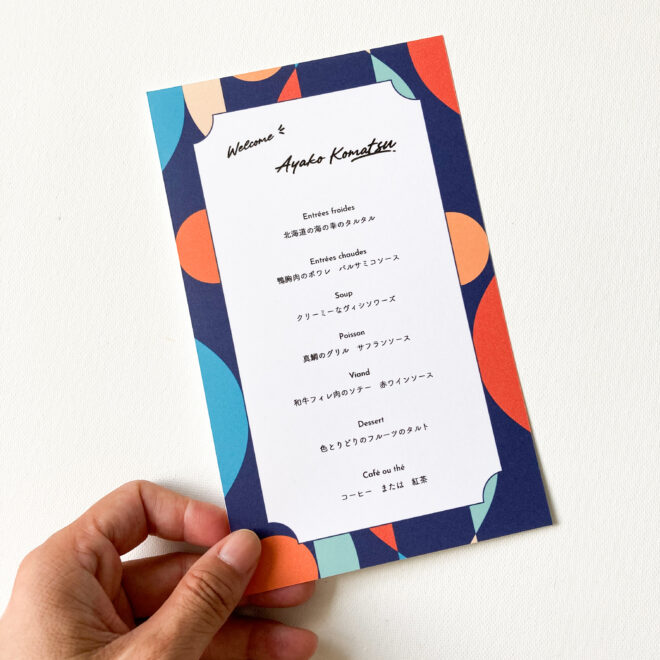 Welcome
Ayako Komatsu
Entrées froides
北海道の海の幸のタルタル
Entrées chaudes
鴨胸肉のポワレ　バルサミコソース
Soup
クリーミーなヴィシソワーズ
Poisson
真鯛のグリル　サフランソース
Viand
和牛フィレ肉のソテー　赤ワインソース
Dessert
色とりどりのフルーツのタルト
Café ou thé
コーヒー　または　紅茶